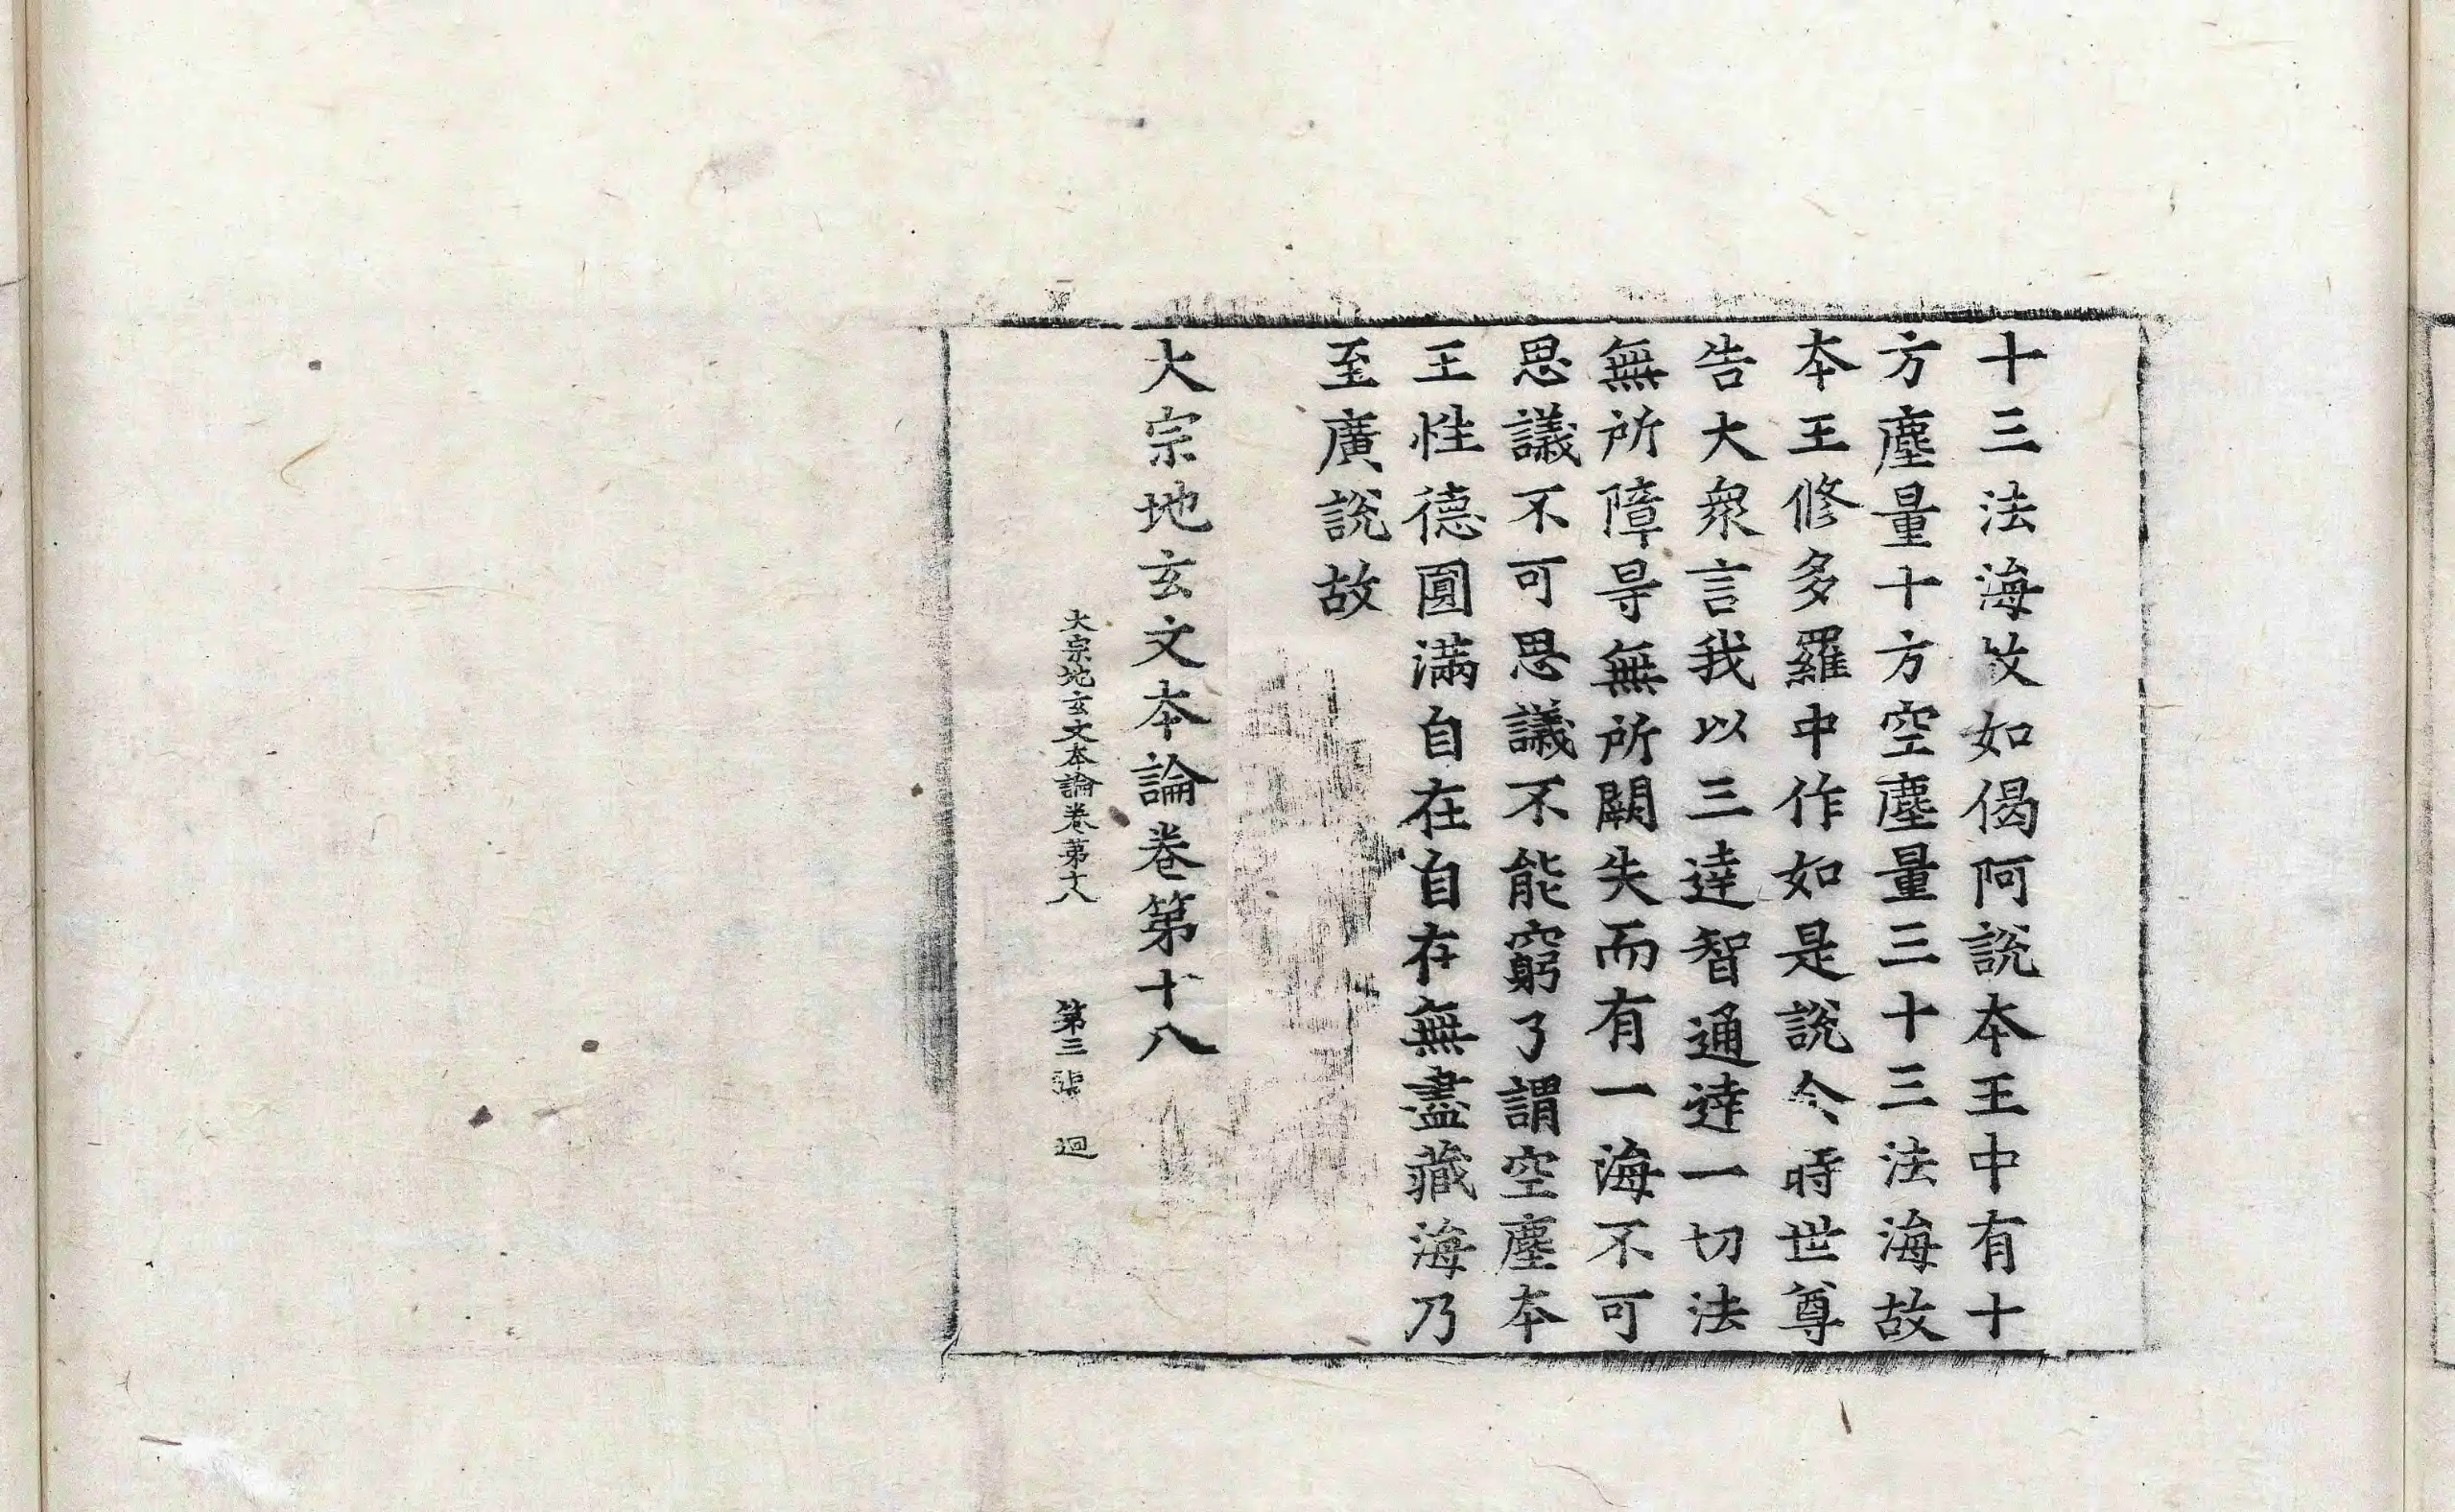 十三法海故如偈阿說本王中有十
方塵量十方空塵量三十三法海故
本王修多羅中作如是說今時世尊
告大衆言我以三達智通達一切法
無所障㝵無所闕失而有一海不可
思議不可思議不能窮了謂空塵本
王性德圓滿自在自存無盡藏海乃
至廣說故
大宗地玄文本論卷第十八
大宗地玄文本論卷第十八 第三 迴